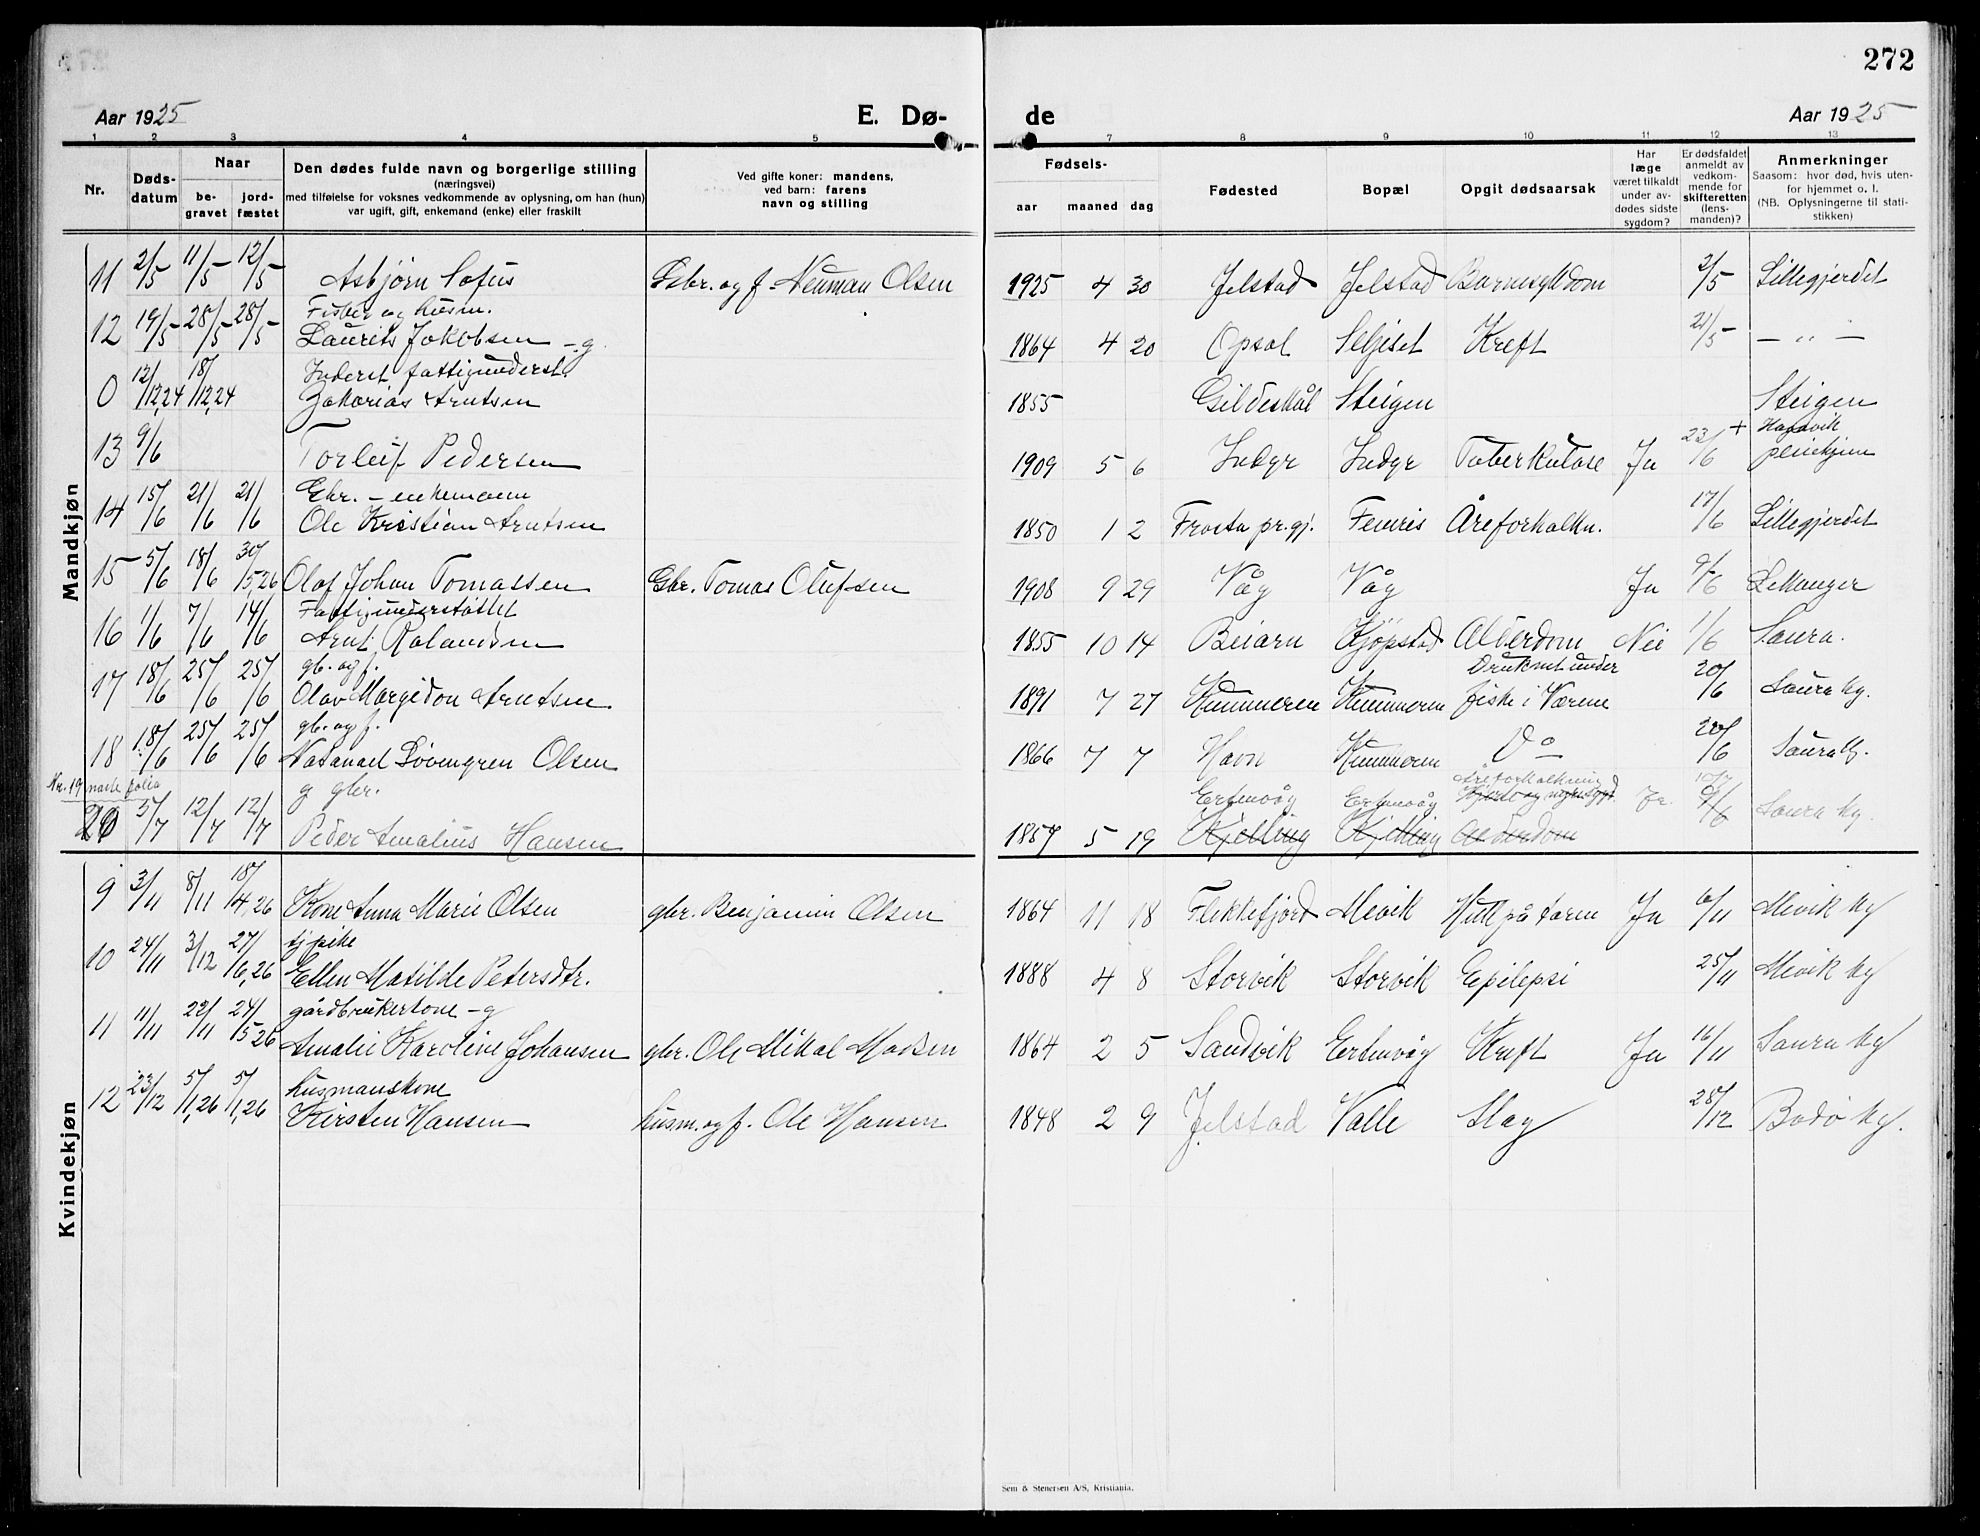 272
Aar 1925
E. Dø-
de
Aar 1925
1 2 3 4 5 7 8 9 10 11 12 13
Nr.
Døds-
datum
Naar
be-
gravet
jord-
fæstet
Den dødes fulde navn og borgerlige stilling
(næringsvei)
med tilføielse for voksnes vedkommende av oplysning, om han (hun)
var ugift, gift, enkemand (enke) eller fraskilt
Ved gifte koner: mandens,
ved barn: farens
navn og stilling
Fødsels-
aar maaned dag
Fødested
Bopæl
Opgit dødsaarsak
Har
læge
været tilkaldt
under av-
dødes sidste
sygdom?
Er dødsfaldet
anmeldt av
vedkom-
mende for
skifteretten
(lens-
manden)?
Anmerkninger
Saasom: hvor død, hvis uten-
for hjemmet o. l.
(NB. Oplysningerne til stati-
stikken)
Mandkjøn
11 2/5 11/5 12/5 Asbjørn Sofus Gbr. og f. Neuman Olsen 1925 4 30 Jelstad Jelstad Barnesykdom 2/5 Lillegjerdet
Fisker og husm.
12 19/5 28/5 28/5 Laurits Jakobsen - g. 1864 4 20 Opsal Seljeset Kreft 21/5 — „ —
Inderst, fattigunderst.
0 12/12,24 18/12,24 Zakarias Arntsen 1855 Gildeskål Steigen Steigen
13 9/6 Torleif Pedersen 1909 5 6 Indyr Indyr Tuberkulose Ja 23/6 +
pleiehjem
Gbr. - enkemann
14 15/6 21/6 21/6 Ole Kristian Arntsen 1850 1 2 Frosta pr.gj. Fleuris Åreforkalkn. 17/6 Lillegjerdet
15 5/6 18/6 30/5 26 Olaf Johan Tomassen Gbr. Tomas Olufsen 1908 9 29 Våg Våg Ja 9/6 Lekanger
Fattigunderstøttet
16 1/6 7/6 14/6 Arnt Rolandsen 1855 10 14 Beiarn Kjøpstad Alderdom Nei 1/6 Saura.
gb. og f.
17 18/6 25/6 25/6 Olav Margido n Arntsen 1891 7 27 Kunneren Kunneren Druknet under
fiske i Værene 20/6 Saura kg.
gb. og f.
18 18/6 25/6 25/6 Natanael Løvengren Olsen 1866 7 7 Havn Kunneren Do 20/6
Nr. 19 næste folio
g gbr.
20 5/7 12/7 12/7 Peder Amalius Hansen 1857 5 19 Ertenvåg Ertenvåg Åreforkalkning
Kjelling Kjelling Alderdom Saura kg.
Kvindekjøn
9 3/11 8/11 18/4,26 Kone Anna Marie Olsen gbr. Benjamin Olsen 1864 11 18 Flekkefjord Mevik Hull på tarm Ja 6/11 Mevik kg
tj pike
10 24/11 3/12 27/6,26 Ellen Matilde Petersdtr. 1888 4 8 Storvik Storvik Epilepsi 25/11 Mevik kg
gårdbrukerkone - g
11 11/11 22/11 24/5 26 Amalie Karoline Johansen gbr. Ole Mikal Madsen 1864 2 5 Sandvik Ertenvåg Kreft Ja 16/11 Saura kg
husmanskone
12 23/12 5/1,26 5/1,26 Kirsten Hansen husm. og f. Ole Hansen 1848 2 9 Jelstad Valle Slag 28/12 Bodø kg.
Sem & Stenersen A/S, Kristiania.